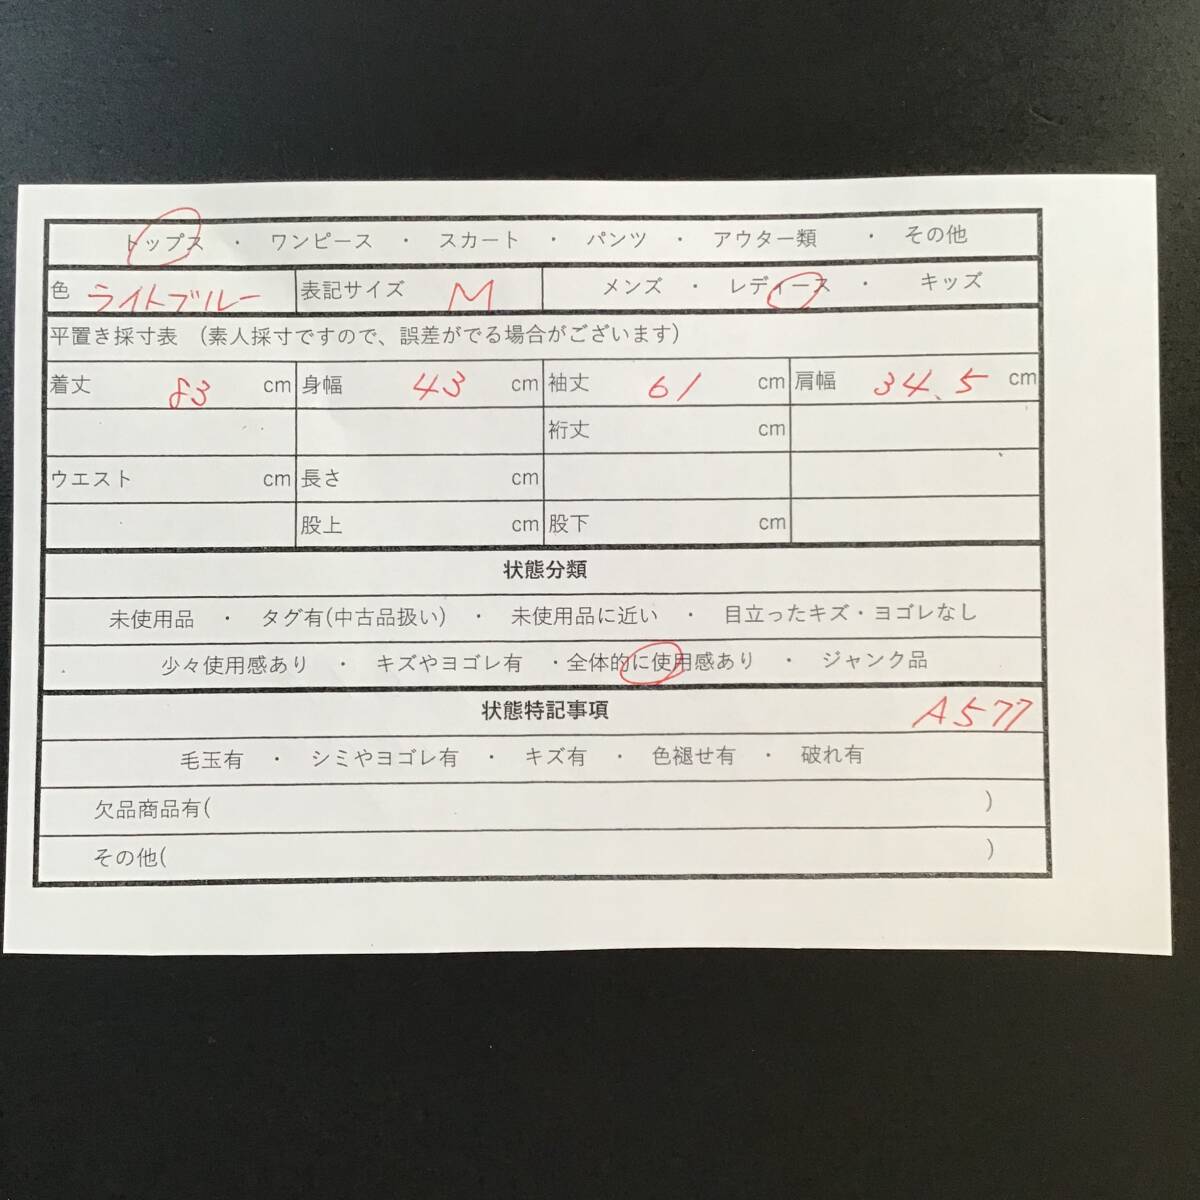 トップス ・ ワンピース ・ スカート ・ パンツ ・ アウター類 ・ その他
色 ライトブルー 表記サイズ M メンズ ・ レディース ・ キッズ
平置き採寸表 （素人採寸ですので、誤差がでる場合がございます）
着丈 83 cm 身幅 43 cm 袖丈 61 cm 肩幅 34.5 cm
裄丈 cm
ウエスト cm 長さ cm
股上 cm 股下 cm
状態分類
未使用品 ・ タグ有(中古品扱い) ・ 未使用品に近い ・ 目立ったキズ・ヨゴレなし
少々使用感あり ・ キズやヨゴレ有 ・全体的に使用感あり ・ ジャンク品
状態特記事項 A577
毛玉有 ・ シミやヨゴレ有 ・ キズ有 ・ 色褪せ有 ・ 破れ有
欠品商品有( )
その他( )